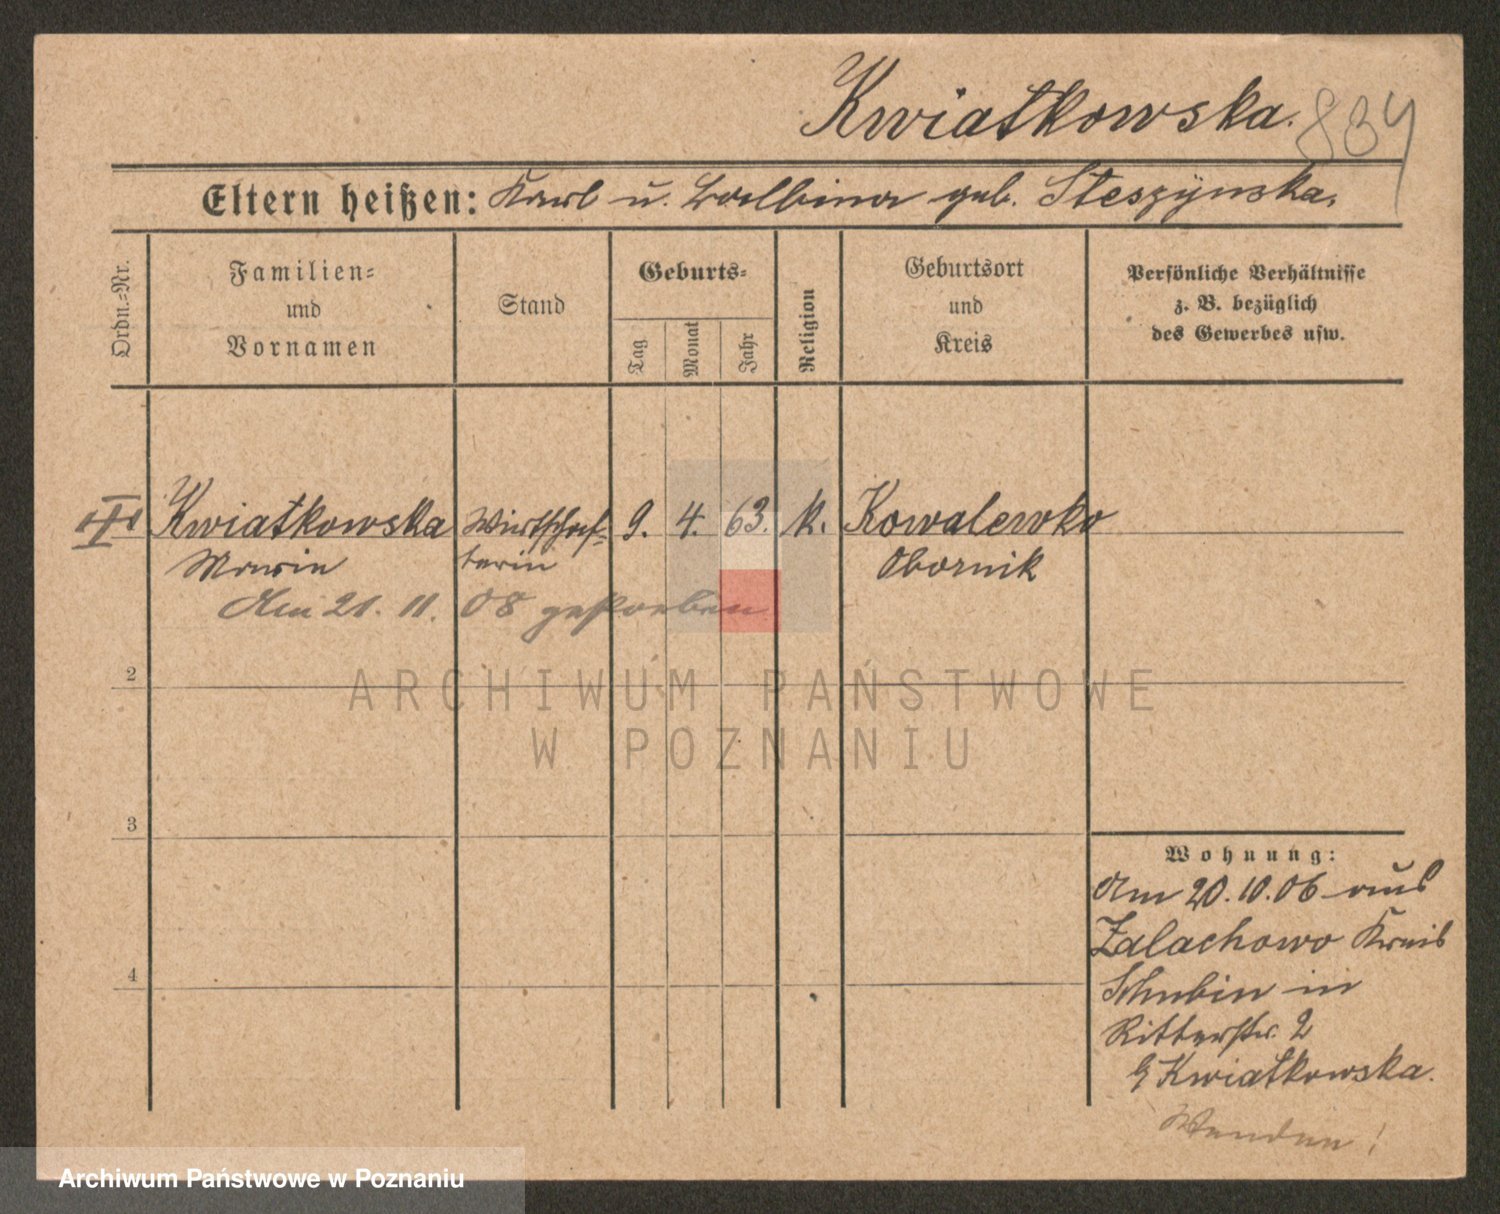 Kwiatkowska. 834
Eltern heißen: Karl u. Balbina geb. Steszÿnska.
Ordn.=Nr.
Familien=
und
Vornamen
Stand
Geburts=
Tag
Monat
Jahr
Religion
Geburtsort
und
Kreis
Persönliche Verhältnisse
z. B. bezüglich
des Gewerbes usw.
Kwiatkowska Wirtschaf= 9. 4. 63. k. Kowalewko
Marie terin Obornik
Am 21. 11. 08 gestorben
2
3
4
Wohnung:
Am 20.10.06 aus
Zalachowo Kreis
Schubin in
Ritterstr. 2
Kwiatkowska.
Wenden!
ARCHIWUM PAŃSTWOWE
W POZNANIU
Archiwum Państwowe w Poznaniu